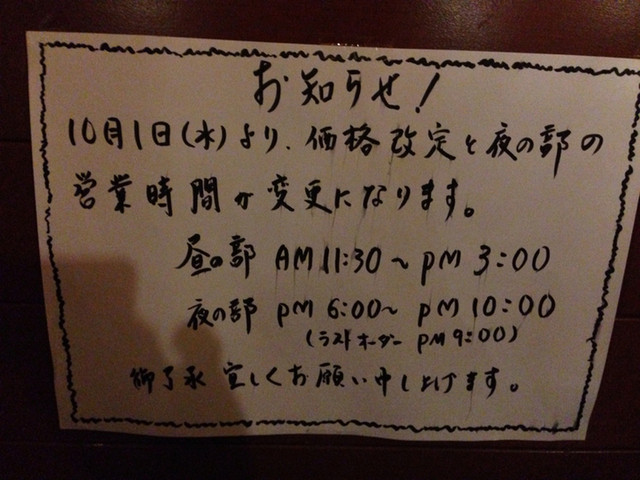 お知らせ!
10月1日(水)より、価格改定と夜の部の
営業時間が変更になります。
昼の部 AM 11:30〜PM 3:00
夜の部 PM 6:00〜PM 10:00
(ラストオーダー PM 9:00)
御了承宜しくお願い申し上げます。